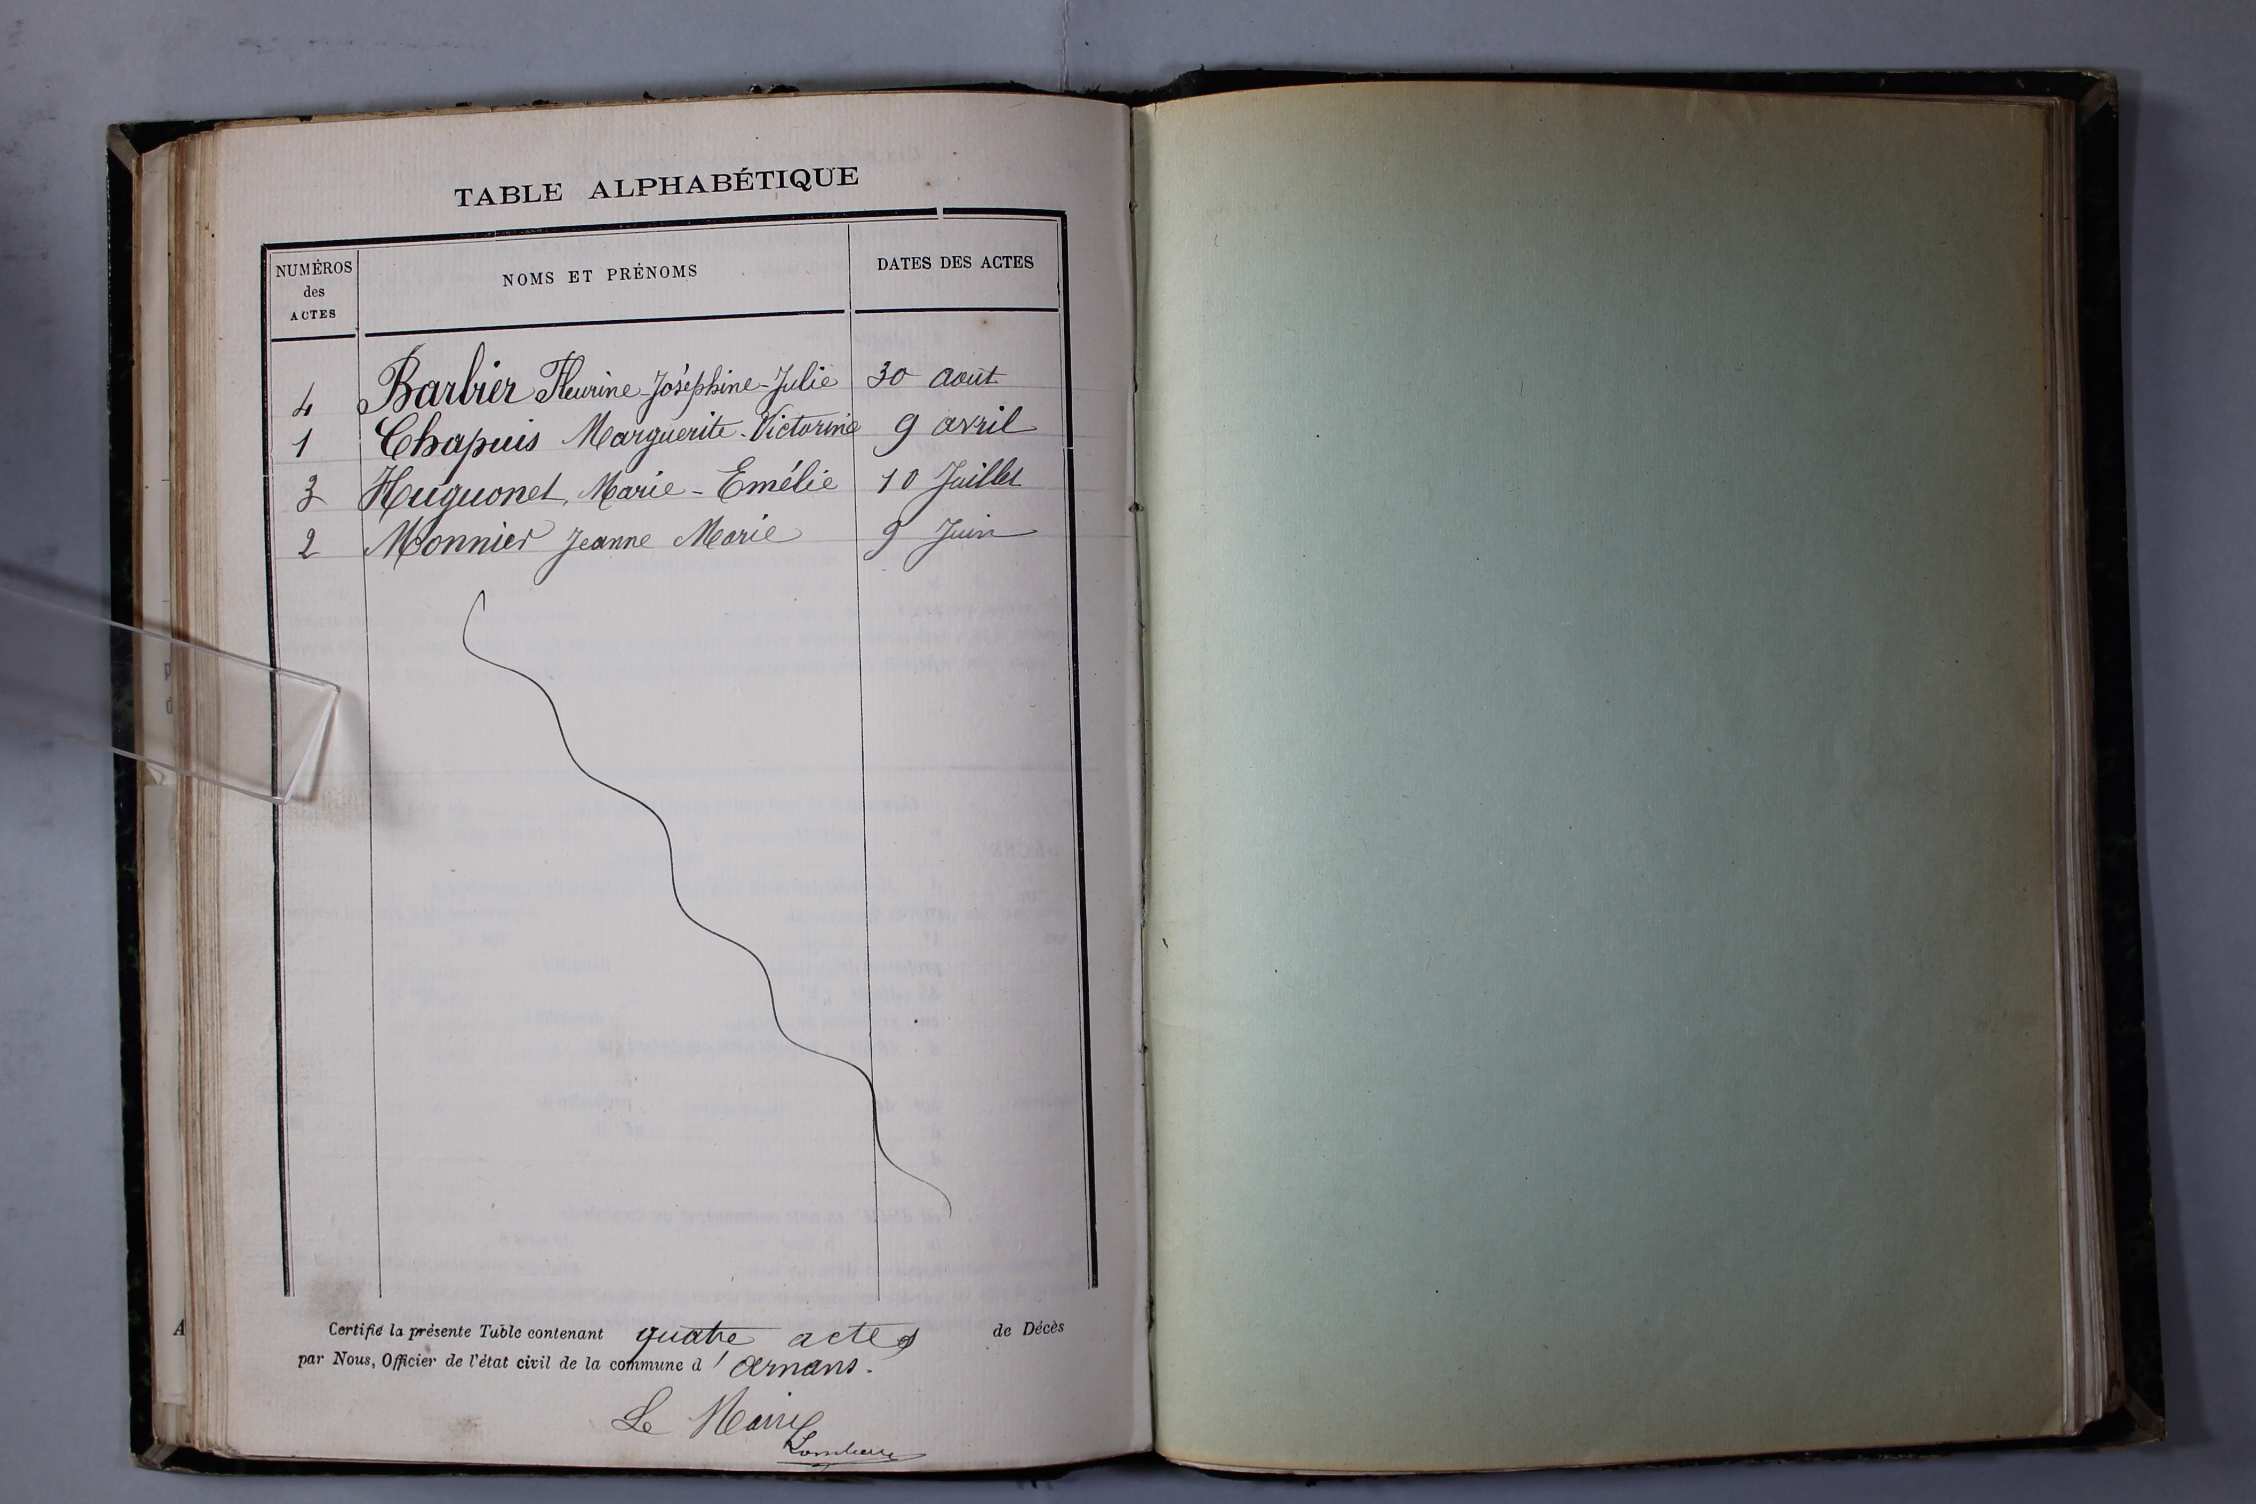 TABLE ALPHABÉTIQUE
NUMÉROS des ACTES NOMS ET PRÉNOMS DATES DES ACTES
4 Barbier Fleurine-Joséphine-Julie 30 aout
1 Chapuis Marguerite-Victorine 9 avril
3 Huguonet, Marie-Emélie 10 Juillet
2 Monnier Jeanne Marie 9 Juin
Certifié la présente Table contenant quatre actes de Décès
par Nous, Officier de l'état civil de la commune d'Arnans.
Le Maire